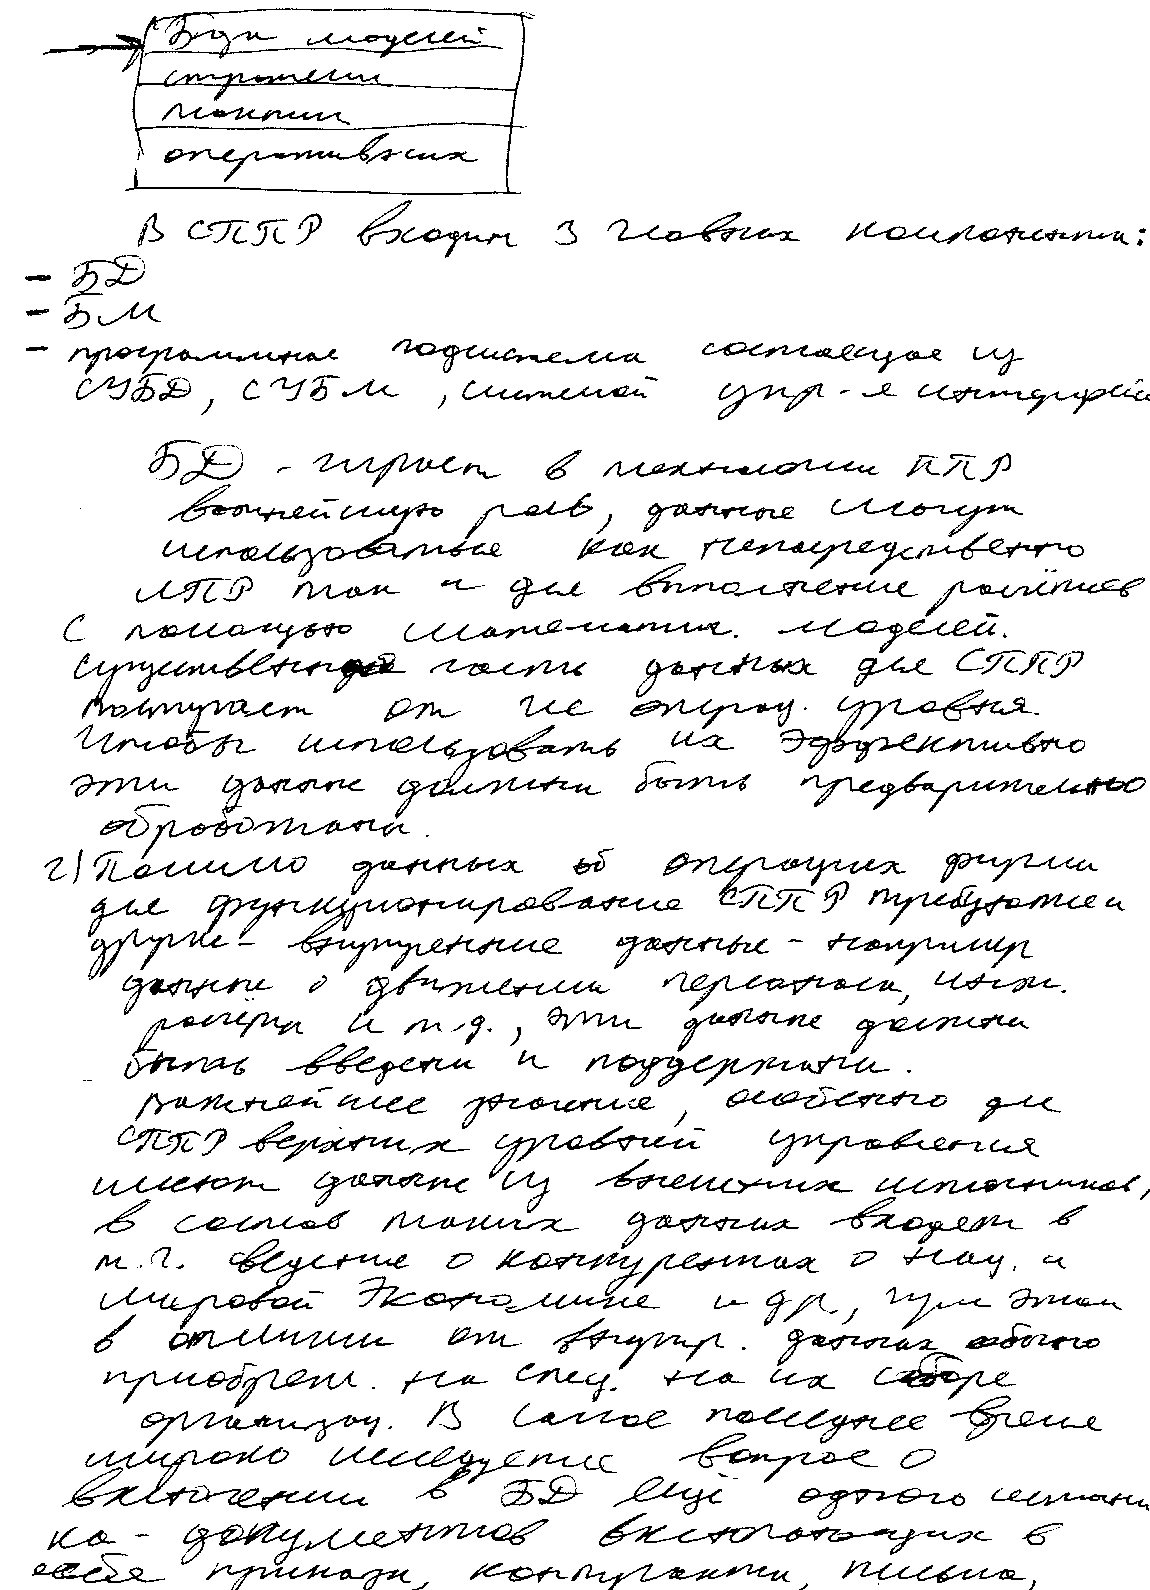 База моделей
стратегич
тактич
оперативная
В СППР входит 3 главных компонента:
- БД
- БМ
- программная подсистема состоящая из
СУБД, СУБМ, системой упр-я интерфей
БД - играет в технологии ППР
важнейшую роль, данные могут
использоваться как непосредственно
ЛПР так и для выполнения расчётов
с помощью математич. моделей.
Существенная часть данных для СППР
поступает от ис операц. уровня.
Чтобы использовать их эффективно
эти данные должны быть предварительно
обработаны.
2) Помимо данных об операциях фирмы
для функционирования СППР требуются и
другие - внутренние данные - например
данные о движении персонала, инж.
расчёты и т.д., эти данные должны
быть введены и поддержаны.
Важнейшее значение, особенно для
СППР верхних уровней управления
имеют данные из внешних источников,
в состав таких данных входят в
т.ч. ведение о конкурентах о нац. и
мировой экономике и др, при этом
в отличии от внутр. данных обычно
приобрет. на спец. на их сборе
организац. В самое последнее время
широко исследуется вопрос о
включении в БД ещё одного источни
ка - документов включающих в
себе приказы, контракты, письма,